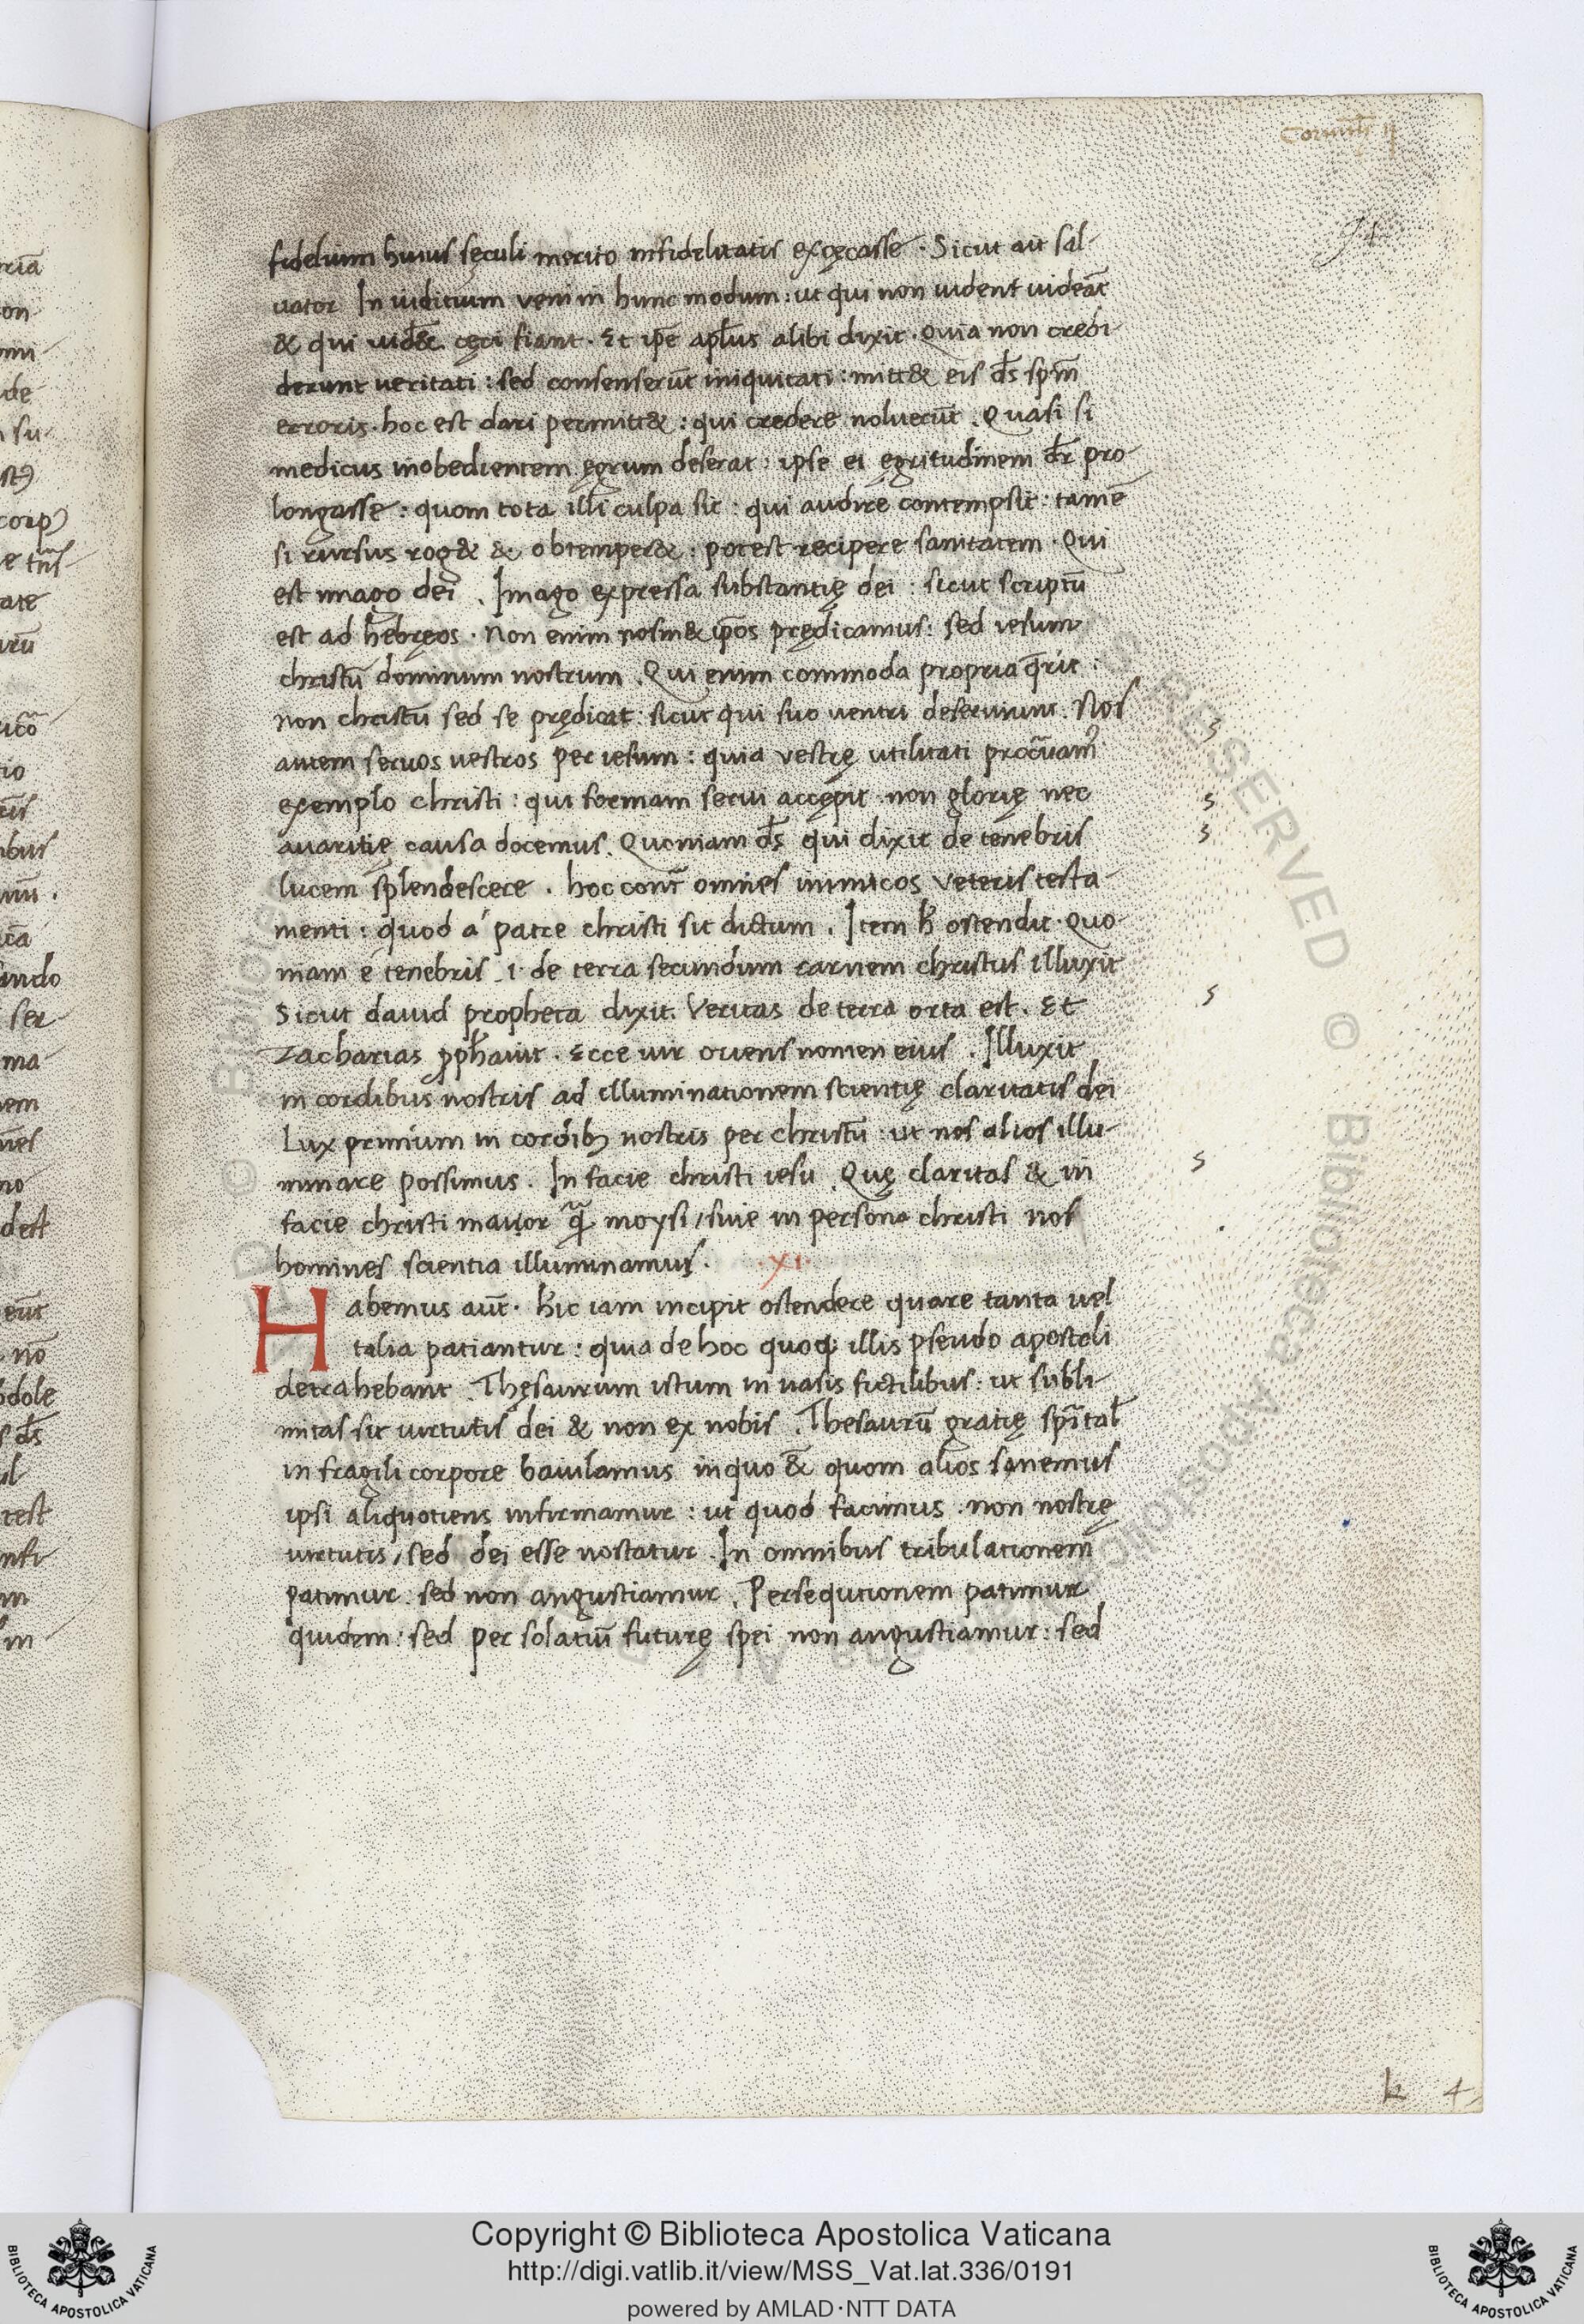 Corinth̄ ij
fidelium huius sęculi merito infidelitatis excęcasse · Sicut ait sal-
uator In iuditium veni in hunc modum : ut qui non uident uideāt
& qui uidēt cęci fiant · Et ip̄e ap̄lus alibi dixit · Quia non credi-
derunt veritati : sed consenserūt iniquitati : mitt& eis d̄s sp̄m
erroris · hoc est dari permitt& : qui credere noluerūt . Quasi si
medicus inobedientem ęgrum deserat : ipse ei ęgritudinem d̄r pro-
longasse : quom tota illi culpa sit : qui audire contempsit : tamē
si rursus rog& & obtemper& : potest recipere sanitatem · Qui
est imago dei . Imago expressa substantię dei : sicut scriptū
est ad hebręos · Non enim nosm& ip̄os prędicamus : sed iesum
christū dominum nostrum . Qui enim commoda propria q̄rit :
non christū sed se prędicat : sicut qui suo uentri deseruiunt . Nos
autem seruos uestros per iesum : quia vestrę utilitati procuram᾽
exemplo christi : qui formam serui accępit . non glorię nec
avaritię causa docemus . Quoniam d̄s qui dixit de tenebris
lucem splendescere . hoc cont̄ omnes inimicos veteris testa-
menti : quod á patre christi sit dictum . Item h̄ ostendit · Quo-
niam é tenebris .i. de terra secundum carnem christus illuxit
Sicut dauid propheta dixit . Veritas de terra orta est . Et
Zacharias p̄phauit . Ecce uir oriens nomen eius . Illuxit
in cordibus nostris ad illuminationem scientię claritatis dei
Lux primum in cordib; nostris per christū : ut nos alios illu-
minare possimus . In facie christi iesu . Quę claritas & in
facie christi maior q̄ moysi / siue in persona christi nos
homines scientia illuminamus . · XI ·
Habemus aūt · hic iam incipit ostendere quare tanta uel
talia patiantur : quia de hoc quoq; illis pseudo apostoli
detrahebant . Thęsaurum istum in uasis fictilibus : ut subli-
mitas sit uirtutis dei & non ex nobis . Thesaurū gratię sp̄ital̄
in fragili corpore baiulamus in quo &̄ quom alios sanemus
ipsi aliquotiens infirmamur : ut quod facimus . non nostrę
uirtutis / sed dei esse noscatur . In omnibus tribulationem
patimur : sed non angustiamur . Persequtionem patimur
quidem : sed per solatiū futurę spei non angustiamur : sed
k 4
Copyright © Biblioteca Apostolica Vaticana
http://digi.vatlib.it/view/MSS_Vat.lat.336/0191
powered by AMLAD·NTT DATA
BIBLIOTECA APOSTOLICA VATICANA
BIBLIOTECA APOSTOLICA VATICANA